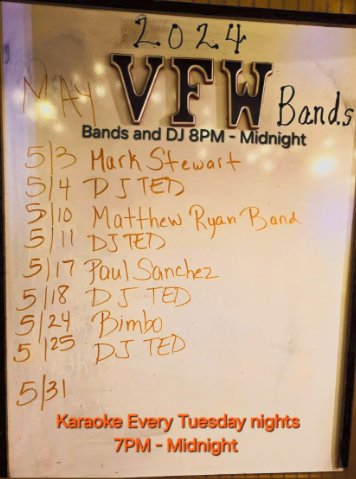 2024
MAY VFW Bands
Bands and DJ 8PM - Midnight
5/3 Mark Stewart
5/4 DJ TED
5/10 Matthew Ryan Band
5/11 DJ TED
5/17 Paul Sanchez
5/18 DJ TED
5/24 Bimbo
5/25 DJ TED
5/31
Karaoke Every Tuesday nights
7PM - Midnight